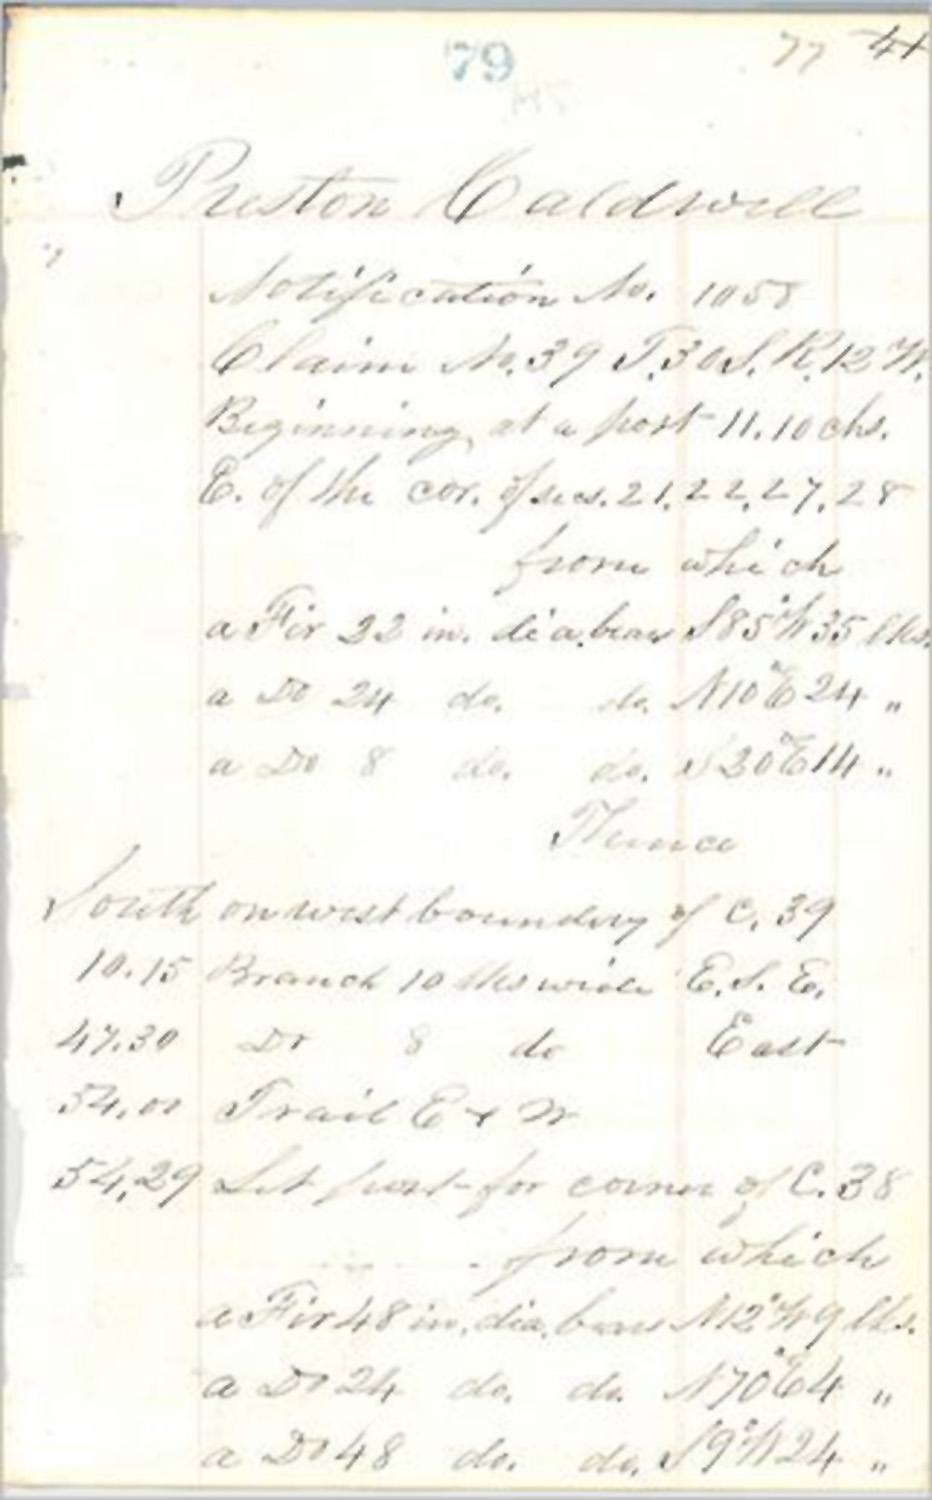 79 77 41
Preston Caldwell
Notification No. 1058
Claim No. 39 T. 30 S. R. 12 W.
Beginning at a post 11.10 chs.
E. of the cor. of secs. 21, 22, 27, 28
from which
a Fir 22 in. dia. bears S 85° W 35 lks.
a Do 24 do. do. N 10° E 24 "
a Do 8 do. do. S 20° E 14 "
Thence
South on west boundary of C. 39
10.15 Branch 10 lks wide E. S. E.
47.30 Do 8 do East
54.00 Trail E & W
54.29 Set post for corner of C. 38
from which
a Fir 48 in. dia. bears N 12° W 9 lks.
a Do 24 do. do. N 70° E 4 "
a Do 48 do. do. S 9° W 24 "